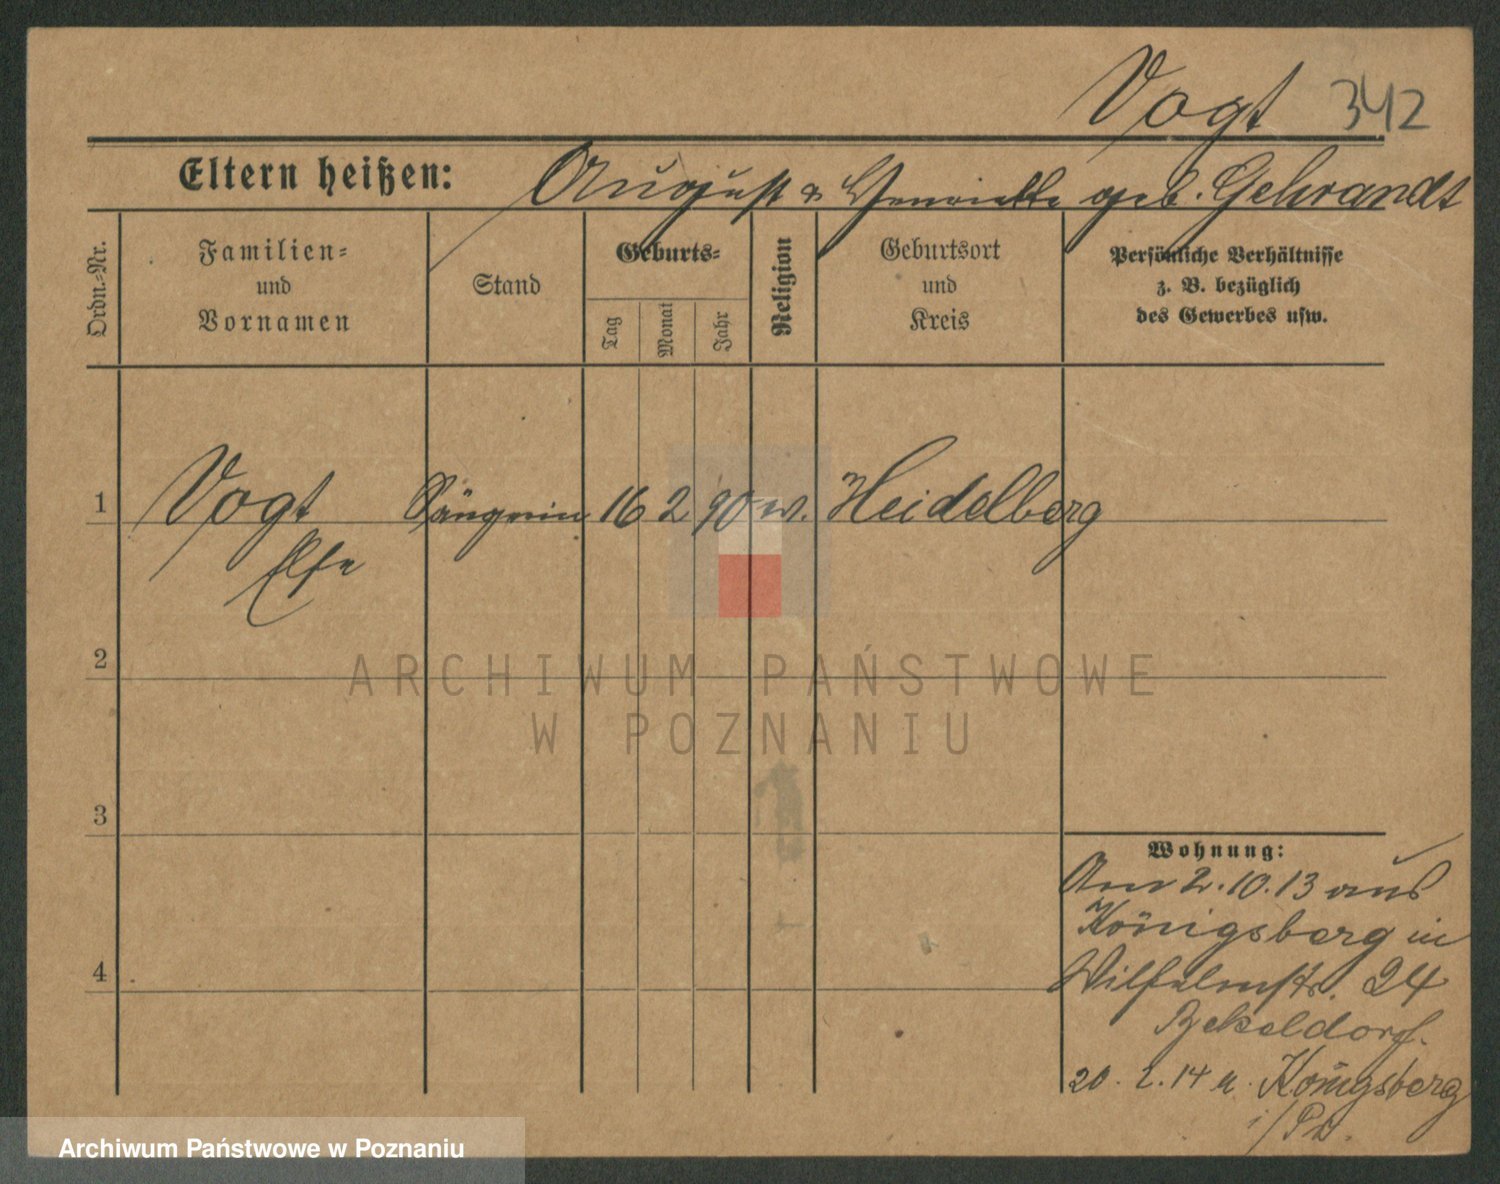 Vogt 342
Eltern heißen: August & Henriette geb. Gehrandt
Ordn.-Nr.
Familien-
und
Vornamen
Stand
Geburts-
Tag
Monat
Jahr
Religion
Geburtsort
und
Kreis
Persönliche Verhältnisse
z. B. bezüglich
des Gewerbes usw.
1 Vogt Sängerin 16 2 90 ev. Heidelberg
Else
2
ARCHIWUM PAŃSTWOWE
W POZNANIU
3
Wohnung:
Am 2.10.13 aus
Königsberg in
4 Wilhelmstr. 24
20. 2. 14 n. Königsberg
i/Pr.
Archiwum Państwowe w Poznaniu